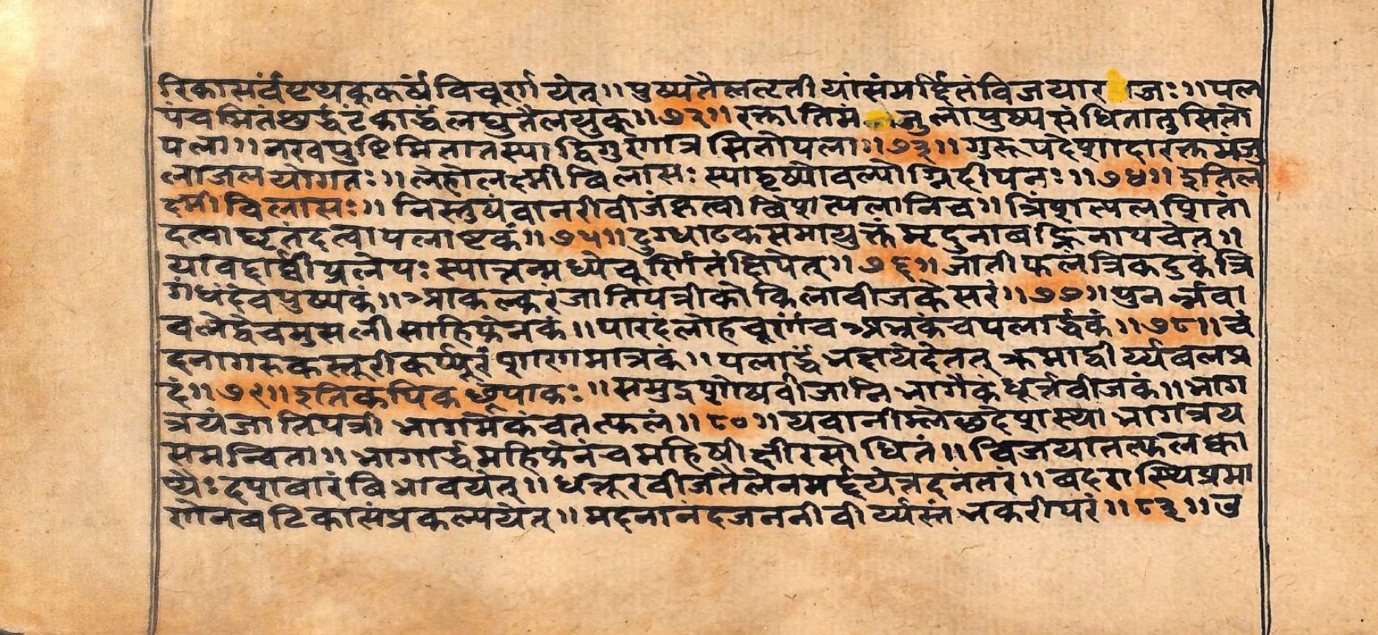 रिकासर्वपृथक्कर्षविचूर्णयेत्॥पुष्पतैलत्दतीयांसंमर्द्दितंविजयार जः॥पल
पंचमितंशुद्धंटंकार्द्धंलघुतैलयुक्॥७२॥रक्तातिमं जुलापुष्पसंधितातुसितो
पला॥नखपुष्टिमितातस्याद्विगुणात्रसितोपला॥७३॥गुरूपदेशादारक्तमंजु
लाजलयोगतः॥लेहोलक्ष्मीविलासःस्याद्वृष्योवल्योग्निदीपनः॥७४॥इतिल
क्ष्मीविलासः॥निस्तुषवानरीवीजंकृत्वाविंशत्पलानिच॥त्रिंशत्पलशितां
दत्वाघृतंदत्वापलाष्टकं॥७५॥दुग्धाढकसमायुक्तंमृदुनावह्निनापचेत्॥
यावद्दार्वीप्रलेपःस्यात्तन्मध्येचूर्णितंक्षिपेत्॥७६॥जातीफलंत्रिकटुकंत्रि
गंधंदेवपुष्पकं॥आकल्करंजातिपत्रीकोकिलावीजकेसरं॥७७॥पुनर्न्नवा
वलेद्वेचमुसलीसाहिफेनकं॥पारदंलोहचूर्णंचअभ्रकंचपलार्द्धकं॥७८॥चं
दनागरुकस्तूरीकर्प्पूरंशाणमात्रकं॥पलार्द्धंभक्षयेदेतत्क्रमाद्वीर्य्यवलप्र
दं॥७९॥इतिकपिकछूपाकः॥समुद्रशोषवीजानिभागैकंधूर्त्तवीजकं॥भाग
त्रयंजातिपत्रीभागमेकंचतत्फलं॥८०॥यवानीम्लेछदेशस्याभागत्रय
समन्विता॥भागार्द्धमहिफेनंचमहिषीक्षीरसोधितं॥विजयातत्फलक्वा
थैःदशवारंविभावयेत्॥धत्तूरवीजतैलेनमर्द्दयेत्तदनंतरं॥वदरास्थिप्रमा
णेनवटिकासंप्रकल्पयेत्॥मदनानंदजननीवीर्य्यस्तंभकरीपरं॥८३॥